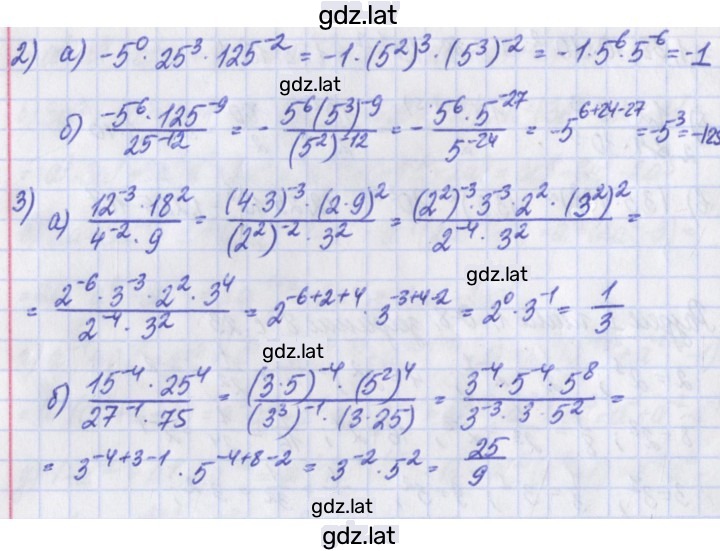 gdz.lat
2) а) -5⁰ · 25³ · 125⁻² = -1 · (5²)³ · (5³)⁻² = -1 · 5⁶ · 5⁻⁶ = -1
gdz.lat
б) (-5⁶ · 125⁻⁹)/(25⁻¹²) = - (5⁶(5³)⁻⁹)/((5²)⁻¹²) = - (5⁶ · 5⁻²⁷)/(5⁻²⁴) = -5⁶⁺²⁴⁻²⁷ = -5³ = -125
3) а) (12⁻³ · 18²)/(4⁻² · 9) = ((4·3)⁻³ · (2·9)²)/((2²)⁻² · 3²) = ((2²)⁻³ · 3⁻³ · 2² · (3²)²)/(2⁻⁴ · 3²) =
gdz.lat
= (2⁻⁶ · 3⁻³ · 2² · 3⁴)/(2⁻⁴ · 3²) = 2⁻⁶⁺²⁺⁴ · 3⁻³⁺⁴⁻² = 2⁰ · 3⁻¹ = 1/3
gdz.lat
б) (15⁻⁴ · 25⁴)/(27⁻¹ · 75) = ((3·5)⁻⁴ · (5²)⁴)/((3³)⁻¹ · (3·25)) = (3⁻⁴ · 5⁻⁴ · 5⁸)/(3⁻³ · 3 · 5²) =
= 3⁻⁴⁺³⁻¹ · 5⁻⁴⁺⁸⁻² = 3⁻² · 5² = 25/9
gdz.lat
gdz.lat